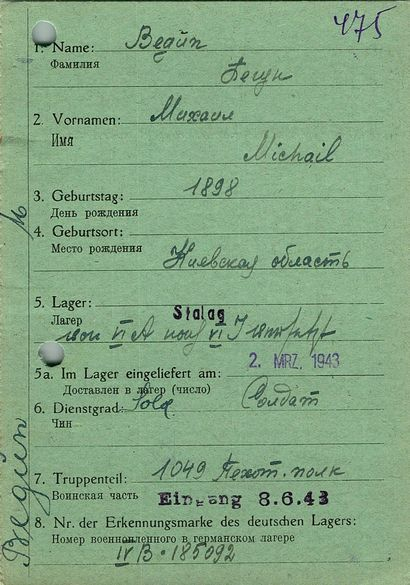 475
1. Name: Bedün
Фамилия
Бегун
2. Vornamen: Михаил
Имя
Michail
3. Geburtstag: 1898
День рождения
4. Geburtsort:
Место рождения
Киевская область
5. Lager: Stalag
Лагер
von VI A nach VI J versetzt
2. MRZ. 1943
5a. Im Lager eingeliefert am:
Доставлен в лагер (число)
6. Dienstgrad: Sold Солдат
Чин
7. Truppenteil: 1049 Пехот. полк
Воинская часть Eingang 8.6.43
8. Nr. der Erkennungsmarke des deutschen Lagers:
Номер военнопленного в германском лагере
IV B · 185092